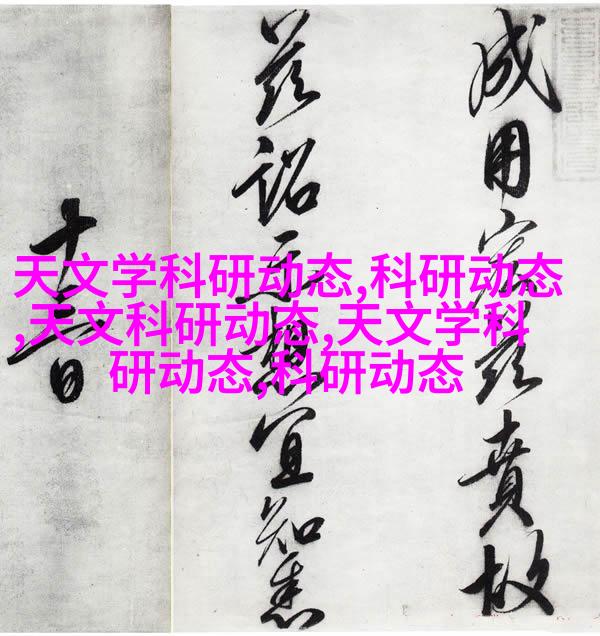 成用宏兹賁故
兹詔示想宜知悉
十三日
天文学科研动态,科研动态
,天文科研动态,天文学科
研动态,科研动态